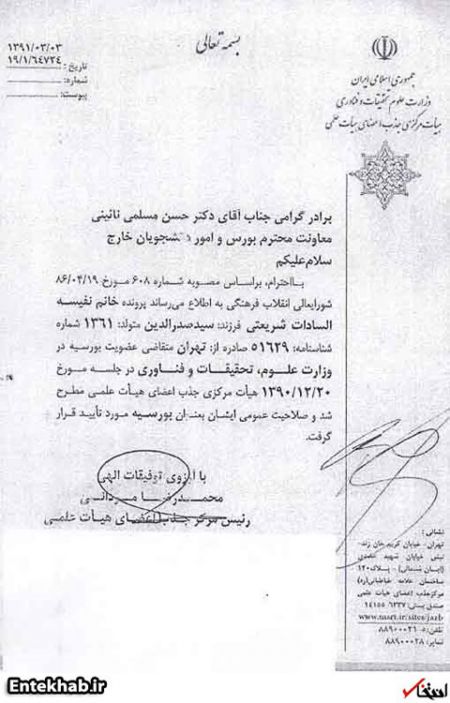 بسمه تعالی
۱۳۹۱/۰۳/۰۳
۱۹/۱/۶۴۷۳۴
تاریخ :
شماره :
پیوست :
جمهوری اسلامی ایران
وزارت علوم تحقیقات و فناوری
هیأت مرکزی جذب اعضای هیأت علمی
برادر گرامی جناب آقای دکتر حسن مسلمی نائینی
معاونت محترم بورس و امور دانشجویان خارج
سلام علیکم
بااحترام، براساس مصوبه شماره ۶۰۸ مورخ ۸۶/۰۴/۱۹
شورایعالی انقلاب فرهنگی به اطلاع می‌رساند پرونده خانم نفیسه
السادات شریعتی فرزند: سیدصدرالدین متولد: ۱۳۶۱ شماره
شناسنامه: ۵۱۶۲۹ صادره از: تهران متقاضی عضویت بورسیه در
وزارت علوم، تحقیقات و فناوری در جلسه مورخ
۱۳۹۰/۱۲/۲۰ هیأت مرکزی جذب اعضای هیأت علمی مطرح
شد و صلاحیت عمومی ایشان بعنوان بورسیه مورد تأیید قرار
گرفت.
با آرزوی توفیقات الهی
محمدرضا مردانی
رئیس مرکز جذب اعضای هیات علمی
نشانی :
تهران- خیابان کریم خان زند-
نبش خیابان شهید عضدی
(آبان شمالی) - پلاک ۱۲۰
ساختمان علامه طباطبائی(ره)
مرکز جذب اعضای هیأت علمی
صندوق پستی: ۶۳۳۷ ۱۴۱۵۵
www.msrt.ir/sites/jazb
تلفن: ۵-۸۸۹۰۰۰۲۱
نمابر: ۸۸۹۰۰۰۲۸
Entekhab.ir
انتخاب